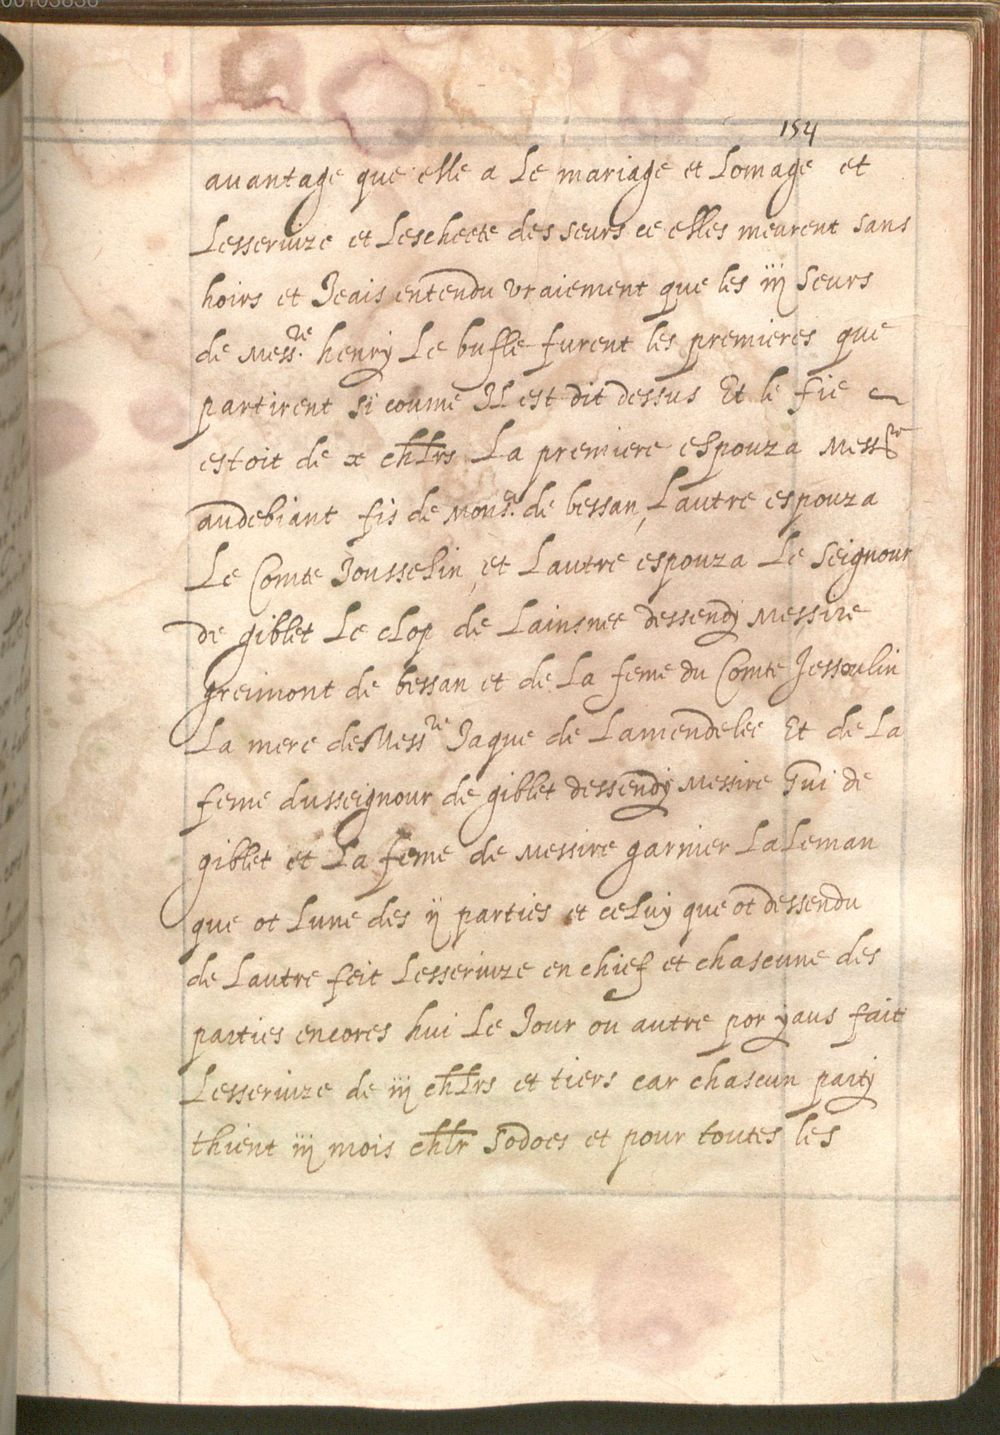 00103836
154
auantage que elle a Le mariage et Lomage et
Lesseruize et Lescheete des seurs ce elles meurent sans
hoirs et Jeais entendu vraiement que les iij Seurs
de Mess.re henry Le bufle furent les premieres que
partirent si coume Il est dit dessus Et le fie
estoit de x chlrs La premiere espouza Mess.re
audebiant fis de Mons.r de bessan, Lautre espouza
Le Comte Jousselin, et Lautre espouza Le Seignour
de giblet Le clop de Lainsnee dessendy Messire
greimont de bessan et de La feme du Comte Jessoulin
La mere de Mess.re Jaque de Lamendelee Et de La
feme dusseignour de giblet dessendy Messire Gui de
giblet et La feme de Messire garnier LaLeman
que ot Lune des ij parties et celuy que ot dessendu
de Lautre feit Lesseruize en chief et chascune des
parties encores hui Le Jour ou autre por yaus fait
Lesseruize de iij chlrs et tiers car chascun party
thient iij mois chlr Sodoes et pour toutes les